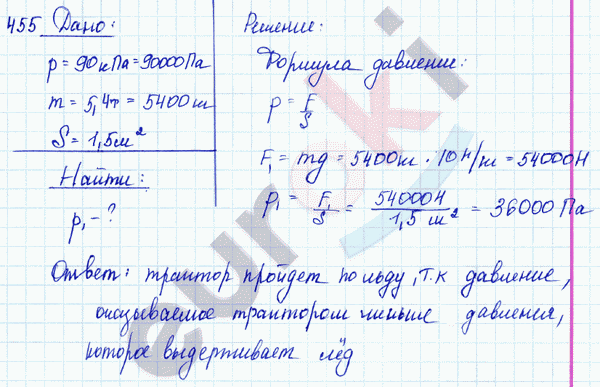 455 Дано:
p = 90кПа = 90000Па
m = 5,4т = 5400кг
S = 1,5м²
Найти:
p₁ - ?
Решение:
Формула давление:
p = F/S
F₁ = mg = 5400кг · 10 Н/кг = 54000Н
p₁ = F₁/S = 54000Н/1,5 м² = 36000 Па
Ответ: трактор пройдет по льду, т.к давление,
оказываемое трактором меньше давления,
которое выдерживает лёд
euroki